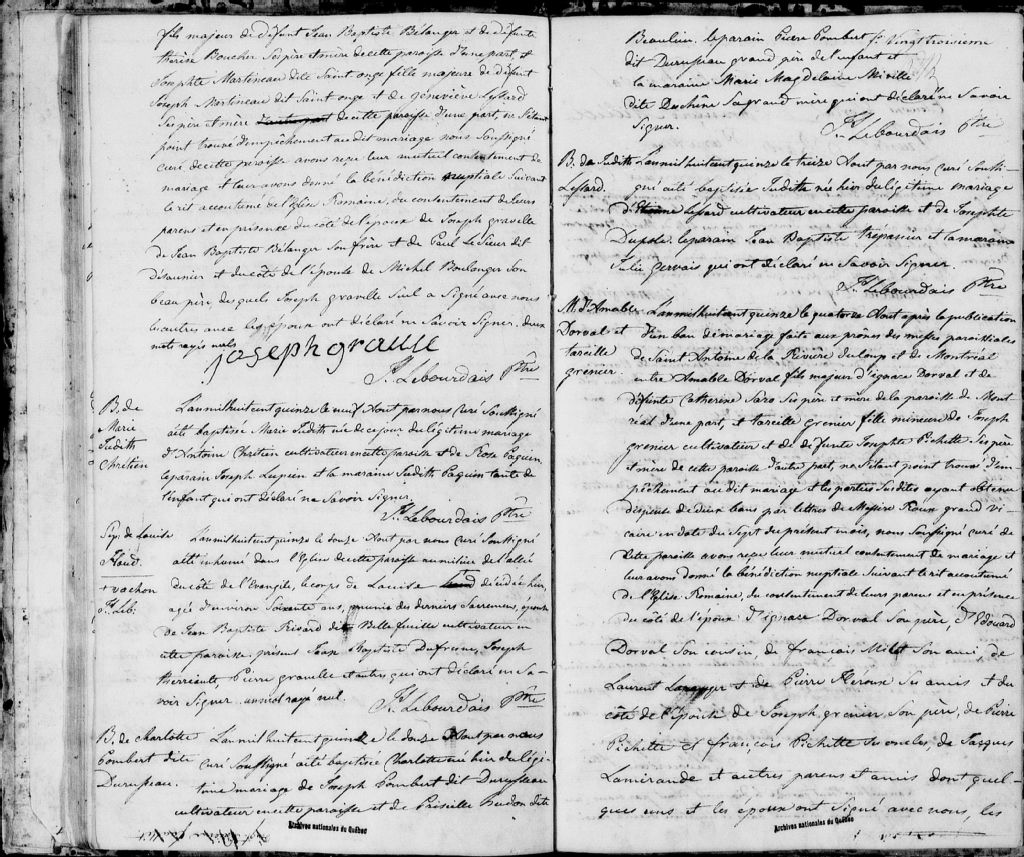 fils majeur de défunt Jean Baptiste Bélanger et de défunte
thérèse Boucher Ses père et mère de cette paroisse d'une part et
Josephte Martineau dite Saint onge fille majeure de défunt
Joseph Martineau dit Saint onge et de géneviève Lessard
Ses père et mère de cette paroisse d'une part, ne S'étant
point trouvé d'empêchement au dit mariage nous Soussigné
curé de cette paroisse avons reçu leur mutuel consentement de
mariage et leur avons donné la bénédiction nuptiale Suivant
le rit accoutumé de l'Eglise Romaine, du contentement de leurs
parens et en présence du côté de l'époux de Joseph gravelle
de Jean Baptiste Bélanger Son frère et de Paul Le Sieur dit
désaunier et du côté de l'épouse de Michel Boulanger Son
beau père desquels Joseph gravelle Seul a Signé avec nous
les autres avec les époux ont déclaré ne Savoir Signer. deux
mots rayés nuls.
joseph gravelle
J. Lebourdais Ptre
B. de
Marie
Judith
Chrétien
L'an mil huit cent quinze le neuf Aout par nous Curé Soussigné
a été baptisée Marie Judith née de ce jour du légitime mariage
d'Antoine Chrétien cultivateur en cette paroisse et de Rose Paquin
le parain Joseph Lupien et la maraine Judith Paquin tante de
l'enfant qui ont déclaré ne Savoir Signer.
J. Lebourdais Ptre
Sep. de Louise
+ vachon
J. Leb.
L'an mil huit cent quinze le douze Aout par nous Curé Soussigné
a été inhumé dans l'Eglise de cette paroisse au milieu de l'allée
du côté de l'Evangile, le corps de Louise + décédée hier
agée d'environ Soixante ans, munie des derniers Sacremens, épouse
de Jean Baptiste Ricard dit Bellefeuille cultivateur en
cette paroisse. présens Jean Baptiste Dufresne, Joseph
therreault, Pierre gravelle et autres qui ont déclaré ne Sa-
voir Signer. un mot rayé nul.
J. Lebourdais Ptre
B. de Charlotte
Pombert dite
Durupeau.
L'an mil huit cent quinze le douze Aout par nous
curé Soussigné a été baptisée Charlotte née hier du légi-
time mariage de Joseph Pombert dit Durupeau
cultivateur en cette paroisse et de Priscille dite
Archives nationales du Québec
Beaulieu. le parain Pierre Pombert
f. Vingt troisieme
dit Durupeau grand père de l'enfant et
la maraine Marie Magdelaine Miville
dite Deschêne Sa grand mère qui ont déclaré ne Savoir
Signer.
J. Lebourdais Ptre
B. de Judith
Lessard.
L'an mil huit cent quinze le treize Aout par nous curé Sous-
signé a été baptisée Judith née hier du légitime mariage
d'Etienne Lessard cultivateur en cette paroisse et de Josephte
le parain Jean Baptiste trépanier et la maraine
Julie gervais qui ont déclaré ne Savoir Signer.
J. Lebourdais Ptre
M. d'Amable
Dorval et
tareille
grenier.
L'an mil huit cent quinze le quatorze Aout après la publication
d'un ban de mariage faite aux prônes des messes paroissiales
de Saint Antoine de la Riviere du loup et de Montréal
entre Amable Dorval fils majeur d'ignace Dorval et de
défunte Catherine Saro Ses père et mère de la paroisse de Mont-
réal d'une part, et tareille grenier fille mineure de Joseph
grenier cultivateur et de défunte Josephte Pichette Ses père
et mère de cette paroisse d'autre part, ne S'étant point trouvé d'em-
pêchement au dit mariage et les parties Susdites ayant obtenu
dispense de deux bans par lettres de Messire Roux grand vi-
caire en date du Sept du présent mois, nous Soussigné curé de
Cette paroisse avons reçu leur mutuel consentement de mariage et
leur avons donné la bénédiction nuptiale Suivant le rit accoutumé
de l'Eglise Romaine, du contentement de leurs parens et en présence
du côté de l'époux d'ignace Dorval Son père, d'Edouard
Dorval Son cousin, de françois Milot Son ami, de
Laurent et de Pierre Heroux Ses amis et du
côté de l'épouse de Joseph grenier Son père, de Pierre
Pichette et françois Pichette Ses oncles, de Jacques
Lamirande et autres parens et amis dont quel-
ques uns et les époux ont Signé avec nous, les
Archives nationales du Québec